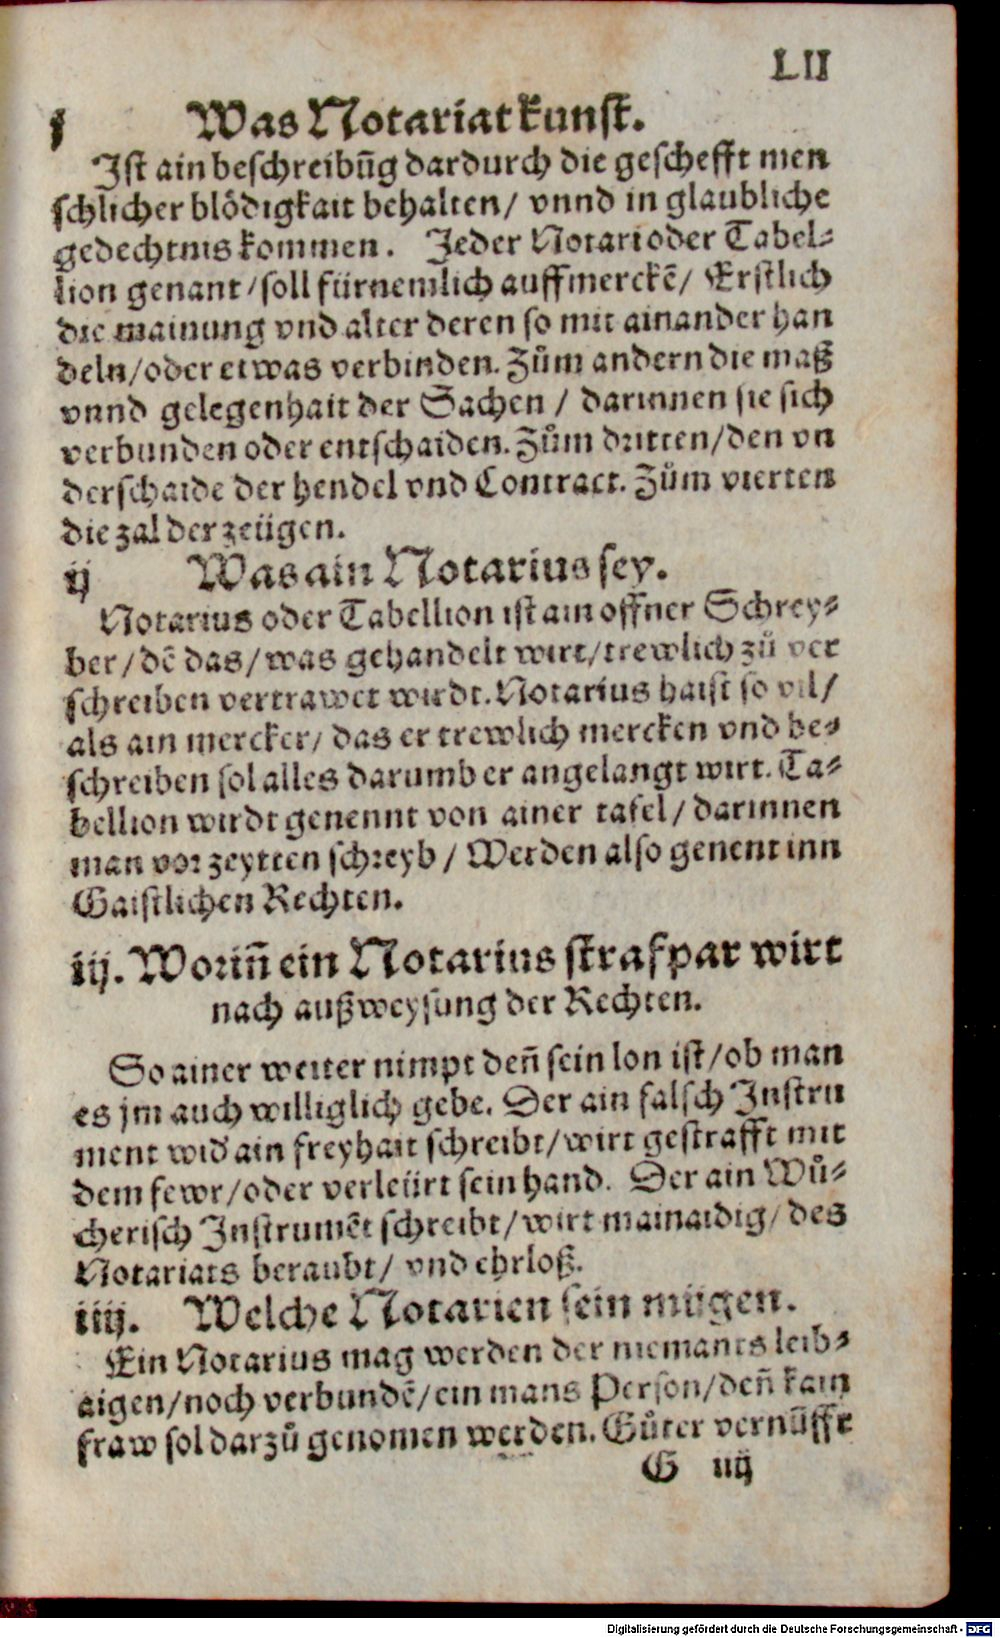 LII
j Was Notariat kunst.
Ist ain beschreibūg dardurch die geschefft men
schlicher blödigkait behalten/ vnnd in glaubliche
gedechtnis kommen. Jeder Notari oder Tabel-
lion genant/soll fürnemlich auffmerckē/ Erstlich
die mainung vnd alter deren so mit ainander han
deln/oder etwas verbinden. Zům andern die maß
vnnd gelegenhait der Sachen / darinnen sie sich
verbunden oder entschaiden. Zům dritten/den vn
derschaide der hendel vnd Contract. Zům vierten
die zal der zeügen.
ij Was ain Notarius sey.
Notarius oder Tabellion ist ain offner Schrey-
ber/dē das/was gehandelt wirt/trewlich zů ver
schreiben vertrawet wirdt. Notarius haist so vil/
als ain mercker/ das er trewlich mercken vnd be-
schreiben sol alles darumb er angelangt wirt. Ta-
bellion wirdt genennt von ainer tafel/ darinnen
man vor zeytten schreyb / Werden also genent inn
Gaistlichen Rechten.
iij. Woriñ ein Notarius strafpar wirt
nach außweysung der Rechten.
So ainer weiter nimpt deñ sein lon ist/ob man
es jm auch williglich gebe. Der ain falsch Instru
ment wid ain freyhait schreibt/wirt gestrafft mit
dem fewr/oder verleürt sein hand. Der ain Wů-
cherisch Instrumēt schreibt/wirt mainaidig/ des
Notariats beraubt/ vnd ehrloß.
iiij. Welche Notarien sein mügen.
Ein Notarius mag werden der niemants leib-
aigen/noch verbundē/ein mans Person/deñ kain
fraw sol darzů genomen werden. Gůter vernūfft
G iiij
Digitalisierung gefördert durch die Deutsche Forschungsgemeinschaft - DFG